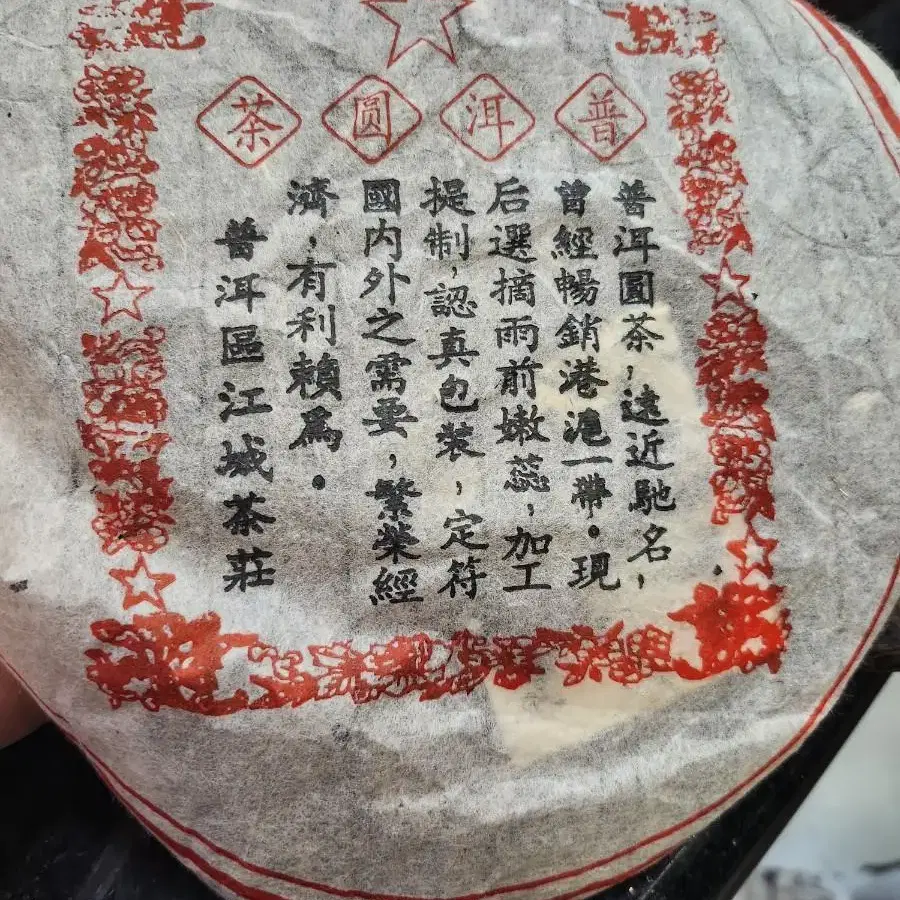 普洱圆茶
普洱圓茶，遠近馳名，
曾經暢銷港滬一帶。現
后選摘雨前嫩蕊，加工
提制，認真包裝，定符
國内外之需要，繁榮經
濟，有利賴爲。
普洱區江城茶莊